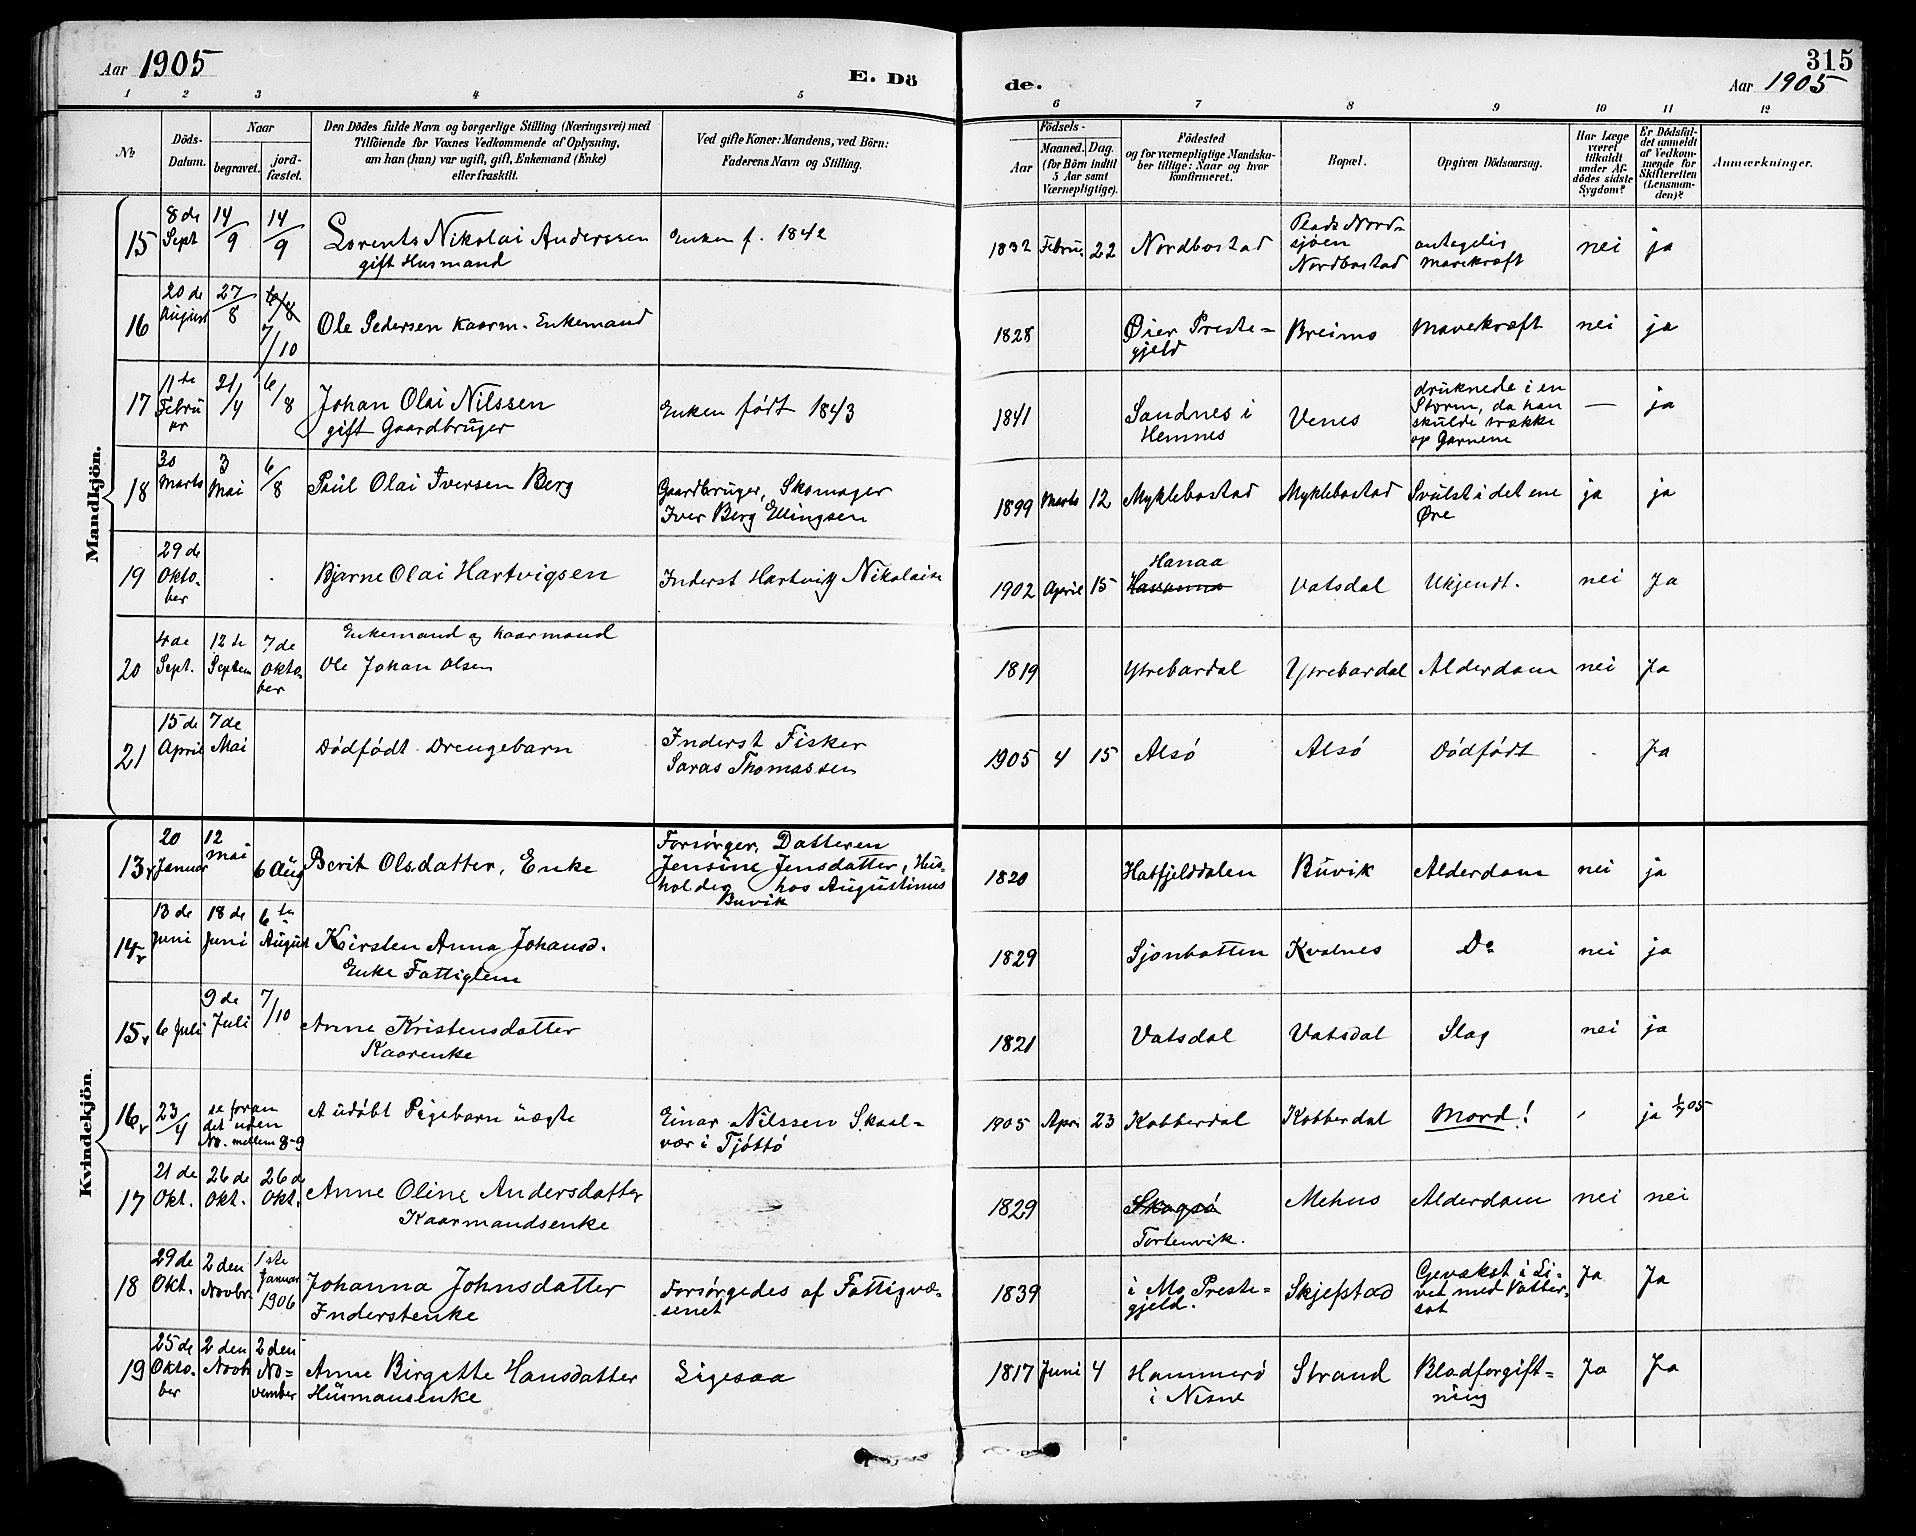 Aar 1905
E. Dö
de.
315
Aar 1905
1 2 3 4 5 6 7 8 9 10 11 12
No
Döds-
Datum.
Naar
begravet.
jord-
fæstet.
Den Dödes fulde Navn og borgerlige Stilling (Næringsvei) med
Tilföiende for Voxnes Vedkommende af Oplysning,
om han (hun) var ugift, gift, Enkemand (Enke)
eller fraskilt.
Ved gifte Koner: Mandens, ved Börn:
Faderens Navn og Stilling.
Födsels-
Aar
Maaned. Dag.
(for Börn indtil
5 Aar samt
Værnepligtige).
Födested
og for værnepligtige Mandska-
ber tillige: Naar og hvor
konfirmeret.
Bopæl.
Opgiven Dödsaarsag.
Har Læge
været
tilkaldt
under Af-
dödes sidste
Sygdom?
Er Dödsfal-
det anmeldt
af Vedkom-
mende for
Skifteretten
(Lensman-
den)?
Anmærkninger.
Mandkjön.
15 8 de Sept 14/9 14/9 Lorents Nikolai Anderssen
gift Husmand
Enken f. 1842
1832 Febru. 22 Nordbostad
Plads Nord-
sjøen
Nordbostad
antagelig
mavekræft
nei ja
16 20 de August 27/8 6/8 7/10 Ole Pedersen Kaarm. Enkemand
1828 Øier Preste-
gjeld
Breimo Mavekræft nei ja
17 11te Febru
ar
21/4 6/8 Johan Olai Nilssen
gift Gaardbruger
Enken født 1843
1841 Sandnes i
Hemnes
Venes
druknede i en
Storm, da han
skulde trække
op Garnene
— ja
18 30 Marts 3 Mai 6/8 Paul Olai Iversen Berg
Gaardbruger, Skomager
Iver Berg Ellingsen
1899 Marts 12 Myklebostad Myklebostad Svulst i det ene
Øre
ja ja
19 29 de Okto-
ber
Bjarne Olai Hartvigsen
Inderst Hartvig Nikolaise
1902 April 15 Hanaa
Vatsdal Ukjendt. nei Ja
20 4 de Sept. 12 te Septem 7 de Okto
ber
Enkemand og kaarmand
Ole Johan Olsen
1819 Ytrebardal Ytrebardal Alderdom nei Ja
21 15 de April 7 de Mai Dødfødt Drengebarn
Inderst Fisker
Saras Thomassen
1905 4 15 Alsø Alsø Dødfødt - Ja
Kvindekjön.
13 20 Januar 12 mai 6 Aug Berit Olsdatter, Enke
Forsørger, Datteren
Jensine Jensdatter, Hus-
holder hos Augustinus
Buvik
1820 Hatfjelddalen Buvik Alderdom nei ja
14 13 de Juni 18 de Juni 6 te August Kirsten Anna Johansd.
Enke Fattiglem
1829 Sjonbotten Kvalnes Do nei ja
15 6 Juli 9 de Juli 7/10 Anne Kristensdatter
Kaarenke
1821 Vatsdal Vatsdal Slag nei ja
16 23/4 se foran
det uden
No. mellem 8-9
A udøbt Pigebarn uægte
Einar Nilssen Skaal-
vær i Tjøttø
1905 Apri 23 Kobberdal Kobberdal Mord! ja 05
17 21 de Okt. 26 de Okt. 26 de Okt. Anne Oline Andersdatter
Kaarmandsenke
1829 Skogsø
Tortenvik.
Mehus Alderdom nei nei
18 29 de Okt. 2 den Novbr 1ste Januar 1906 Johanna Johnsdatter
Inderstenke
Forsørgedes af Fattigvæ-
senet
1839 i Mo Preste-
gjeld.
Skjefstad
Gevækst i Li-
vet med Vatter-
sot
Ja Ja
19 25 de Okto-
ber
2 den Novb 2 den No-
vember
Anne Birgitte Hansdatter
Husmansenke
Ligesaa
1817 Juni 4 Hammerø
i Nesne
Strand Blodforgift-
ning
Ja Ja